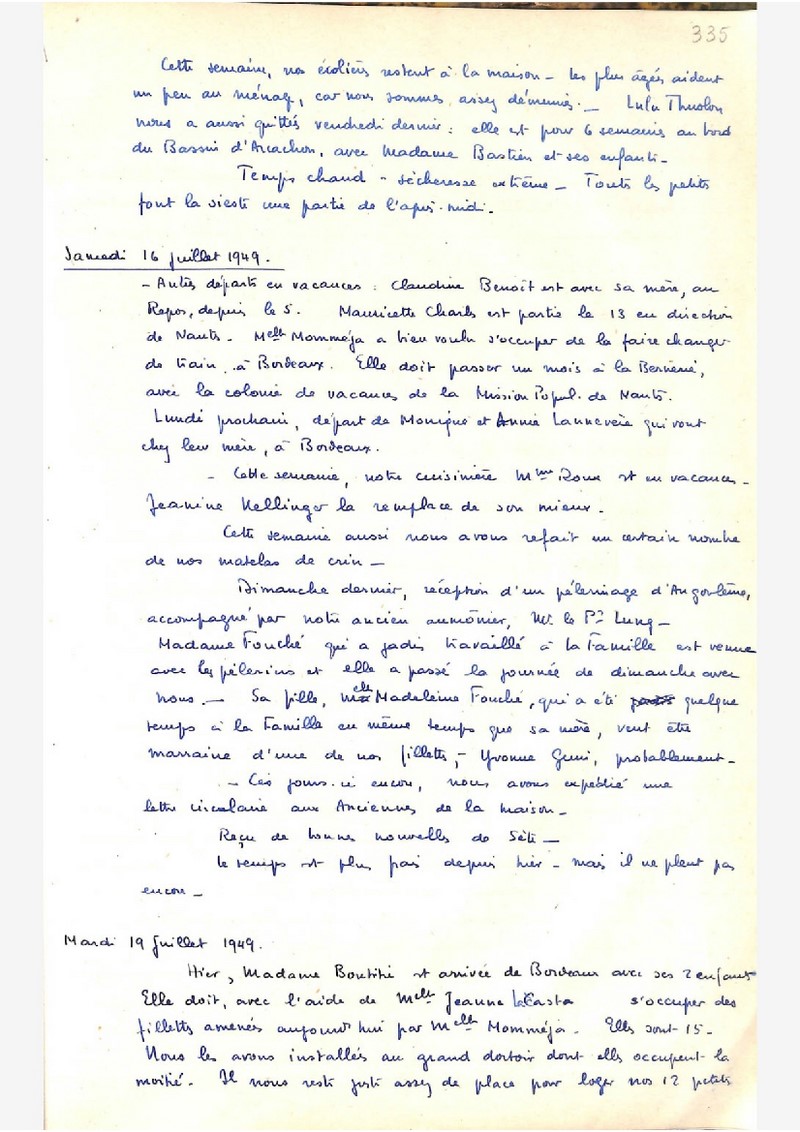 335
Cette semaine, nos écoliers restent à la maison - les plus âgés aident
un peu au ménage, car nous sommes assez démunies. - Lulu Thuolon
nous a aussi quittés vendredi dernier : elle est pour 6 semaines au bord
du Bassin d'Arcachon, avec Madame Bastien et ses enfants -
Temps chaud - sécheresse extrême - Touts les petits
font la sieste une partie de l'après-midi.
Samedi 16 juillet 1949.
- Autres départs en vacances : Claudine Benoît est avec sa mère, au
Repos, depuis le 5. Mauricette Charles est partie le 13 en direction
de Nantes. Melle Momméja a bien voulu s'occuper de la faire changer
de train à Bordeaux. Elle doit passer un mois à la Bernerie,
avec la colonie de vacances de la Mission Popul. de Nantes.
Lundi prochain, départ de Monique et Annie Lannevère qui vont
chez leur mère, à Bordeaux.
- Cette semaine, notre cuisinière Mme Roux est en vacances -
Jeanine Kellinger la remplace de son mieux.
Cette semaine aussi nous avons refait un certain nombre
de nos matelas de crin -
Dimanche dernier, réception d'un pèlerinage d'Angoulême,
accompagné par notre ancien aumônier, Mr. le Pr Lung -
Madame Fouché qui a jadis travaillé à la Famille est venue
avec les pèlerins et elle a passé la journée de dimanche avec
nous. - Sa fille, Melle Madeleine Fouché, qui a été quelque
temps à la Famille en même temps que sa mère, veut être
marraine d'une de nos fillettes, - Yvonne Guni, probablement -
- Ces jours-ci encore, nous avons expédié une
lettre circulaire aux Anciennes de la maison -
Reçu de bonnes nouvelles de Sète -
le temps est plus frais depuis hier - mais il ne pleut pas
encore -
Mardi 19 Juillet 1949.
Hier, Madame Boutité est arrivée de Bordeaux avec ses 2 enfants
Elle doit, avec l'aide de Melle Jeanne LaCasta s'occuper des
fillettes amenées aujourd'hui par Melle Momméja. Elles sont 15 -
Nous les avons installées au grand dortoir dont elles occupent la
moitié. Il nous reste juste assez de place pour loger nos 12 petits